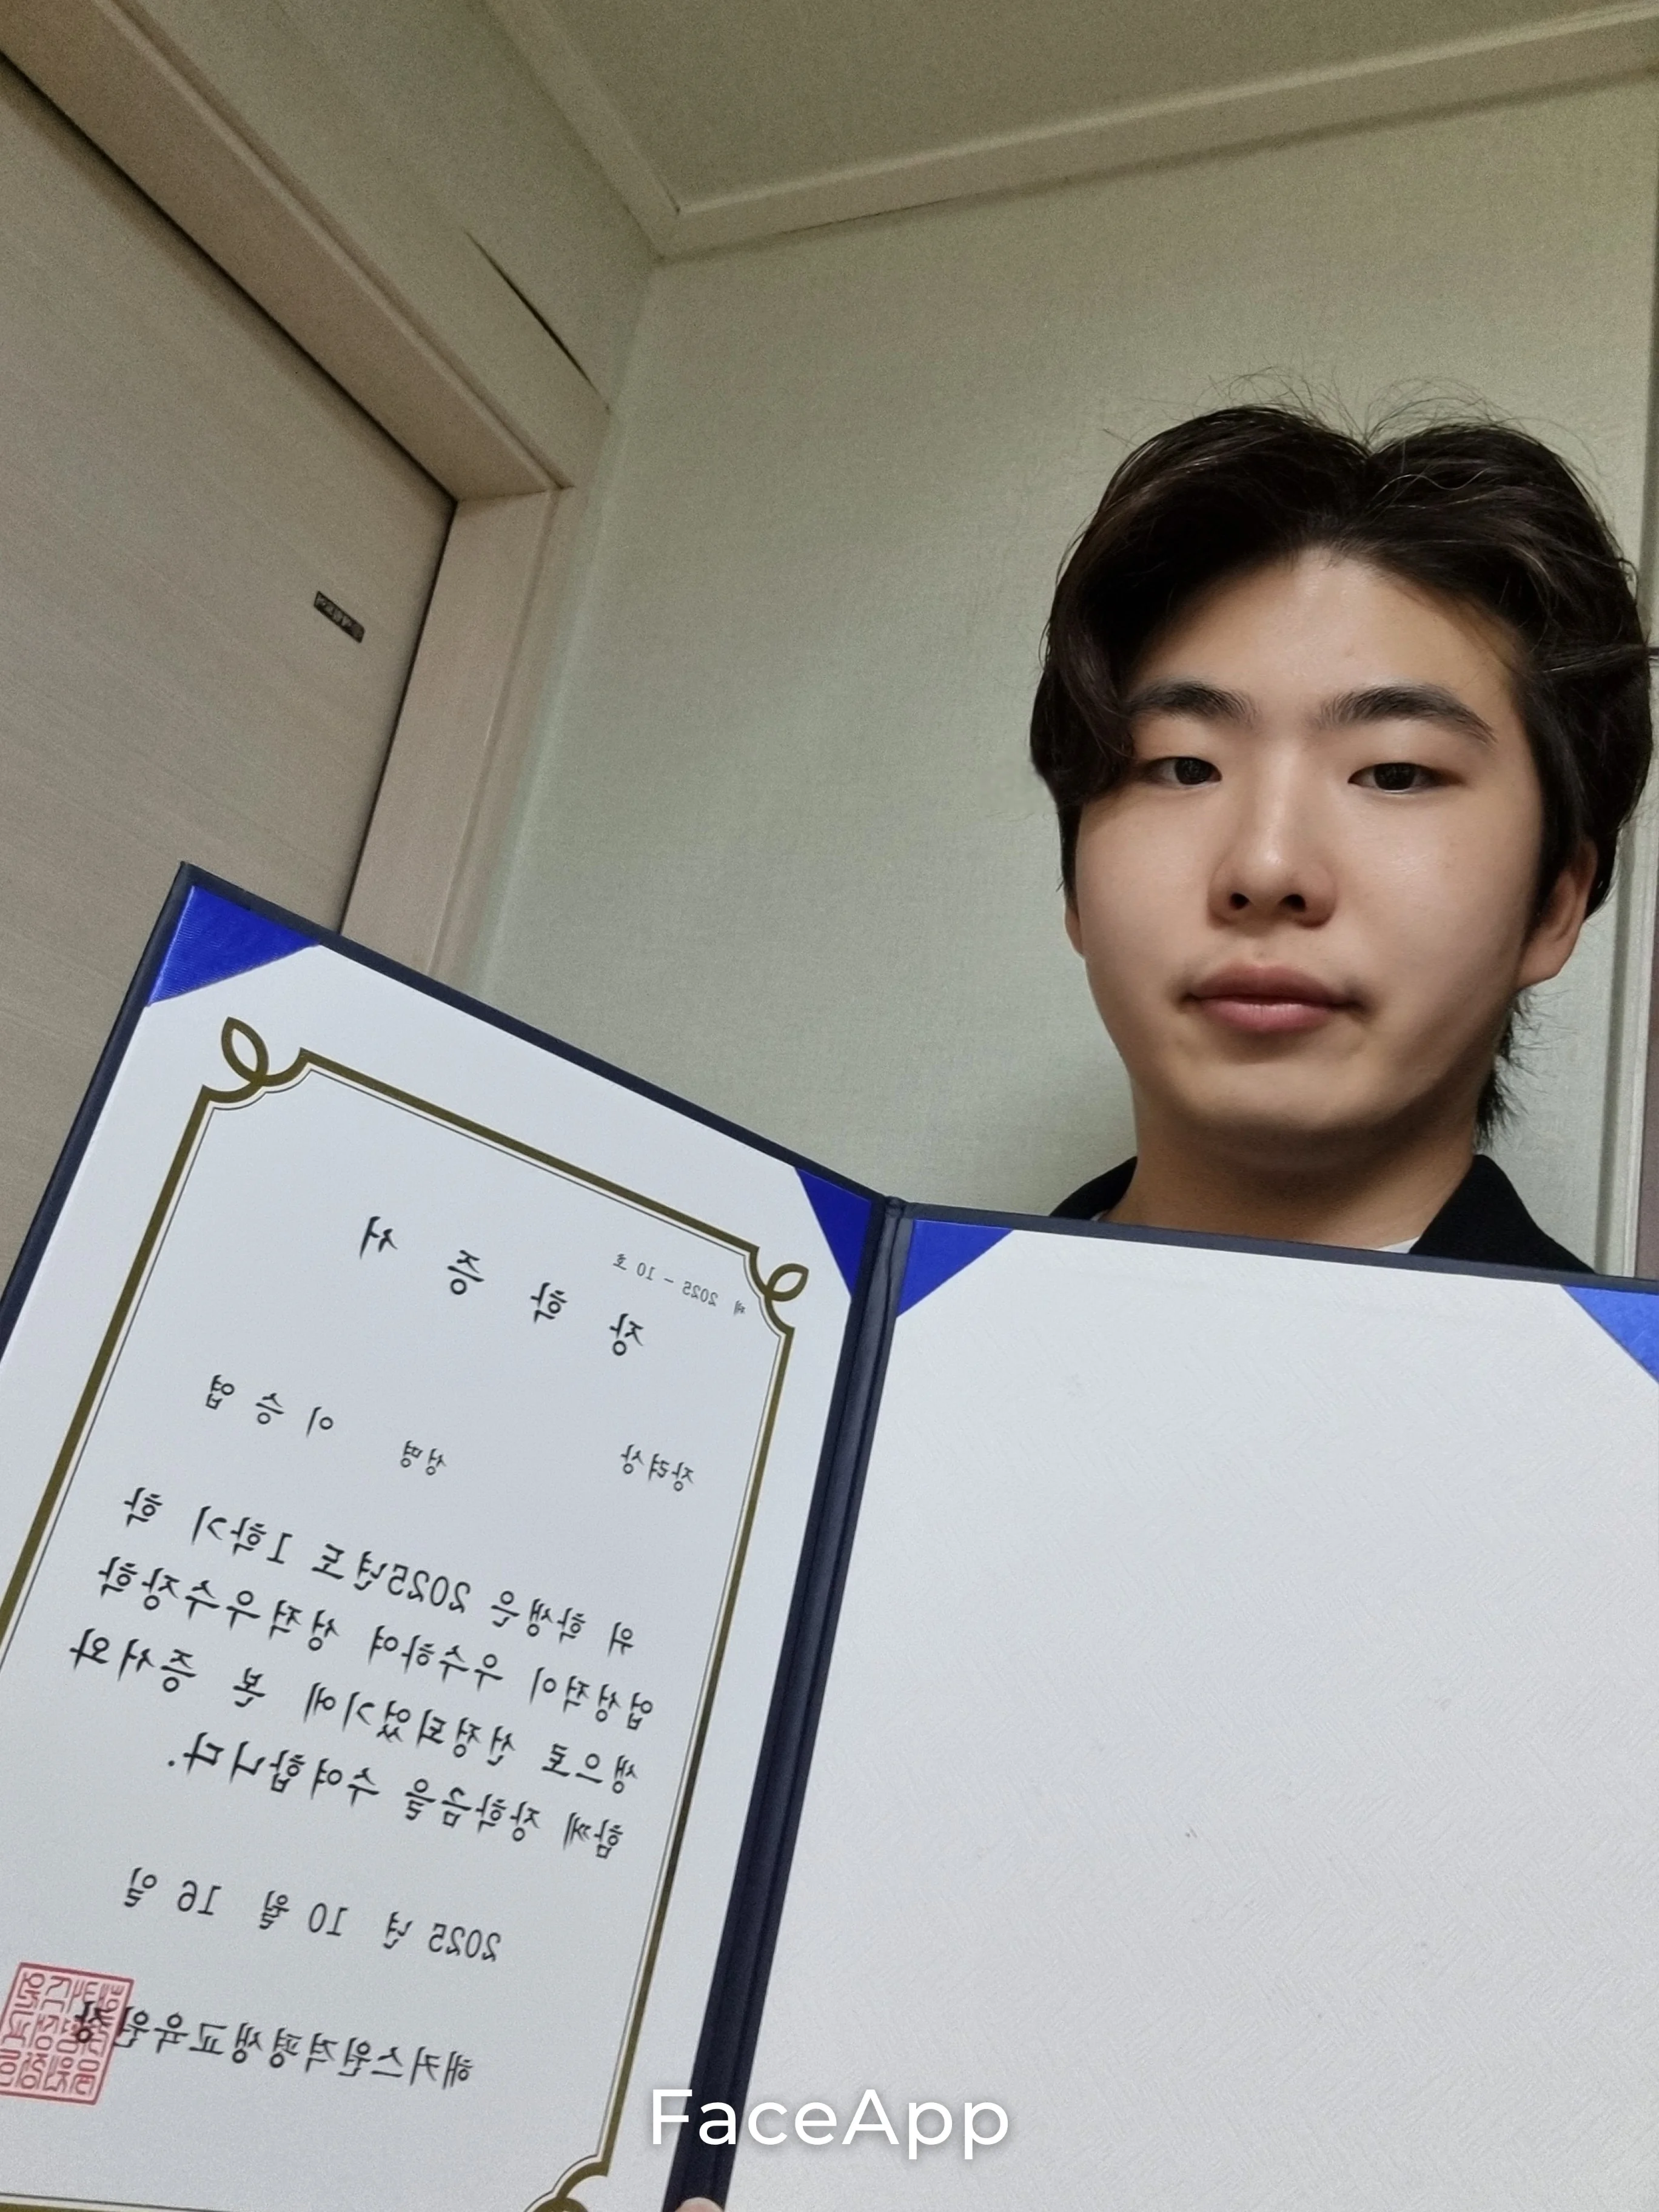 제 2025 - 10 호
장 학 증 서
장려상 성명 이 승 엽
위 학생은 2025년도 1학기 학
업성적이 우수하여 성적우수장학
생으로 선정되었기에 본 증서와
함께 장학금을 수여합니다.
2025 년 10 월 16 일
해커스원격평생교육원장
FaceApp